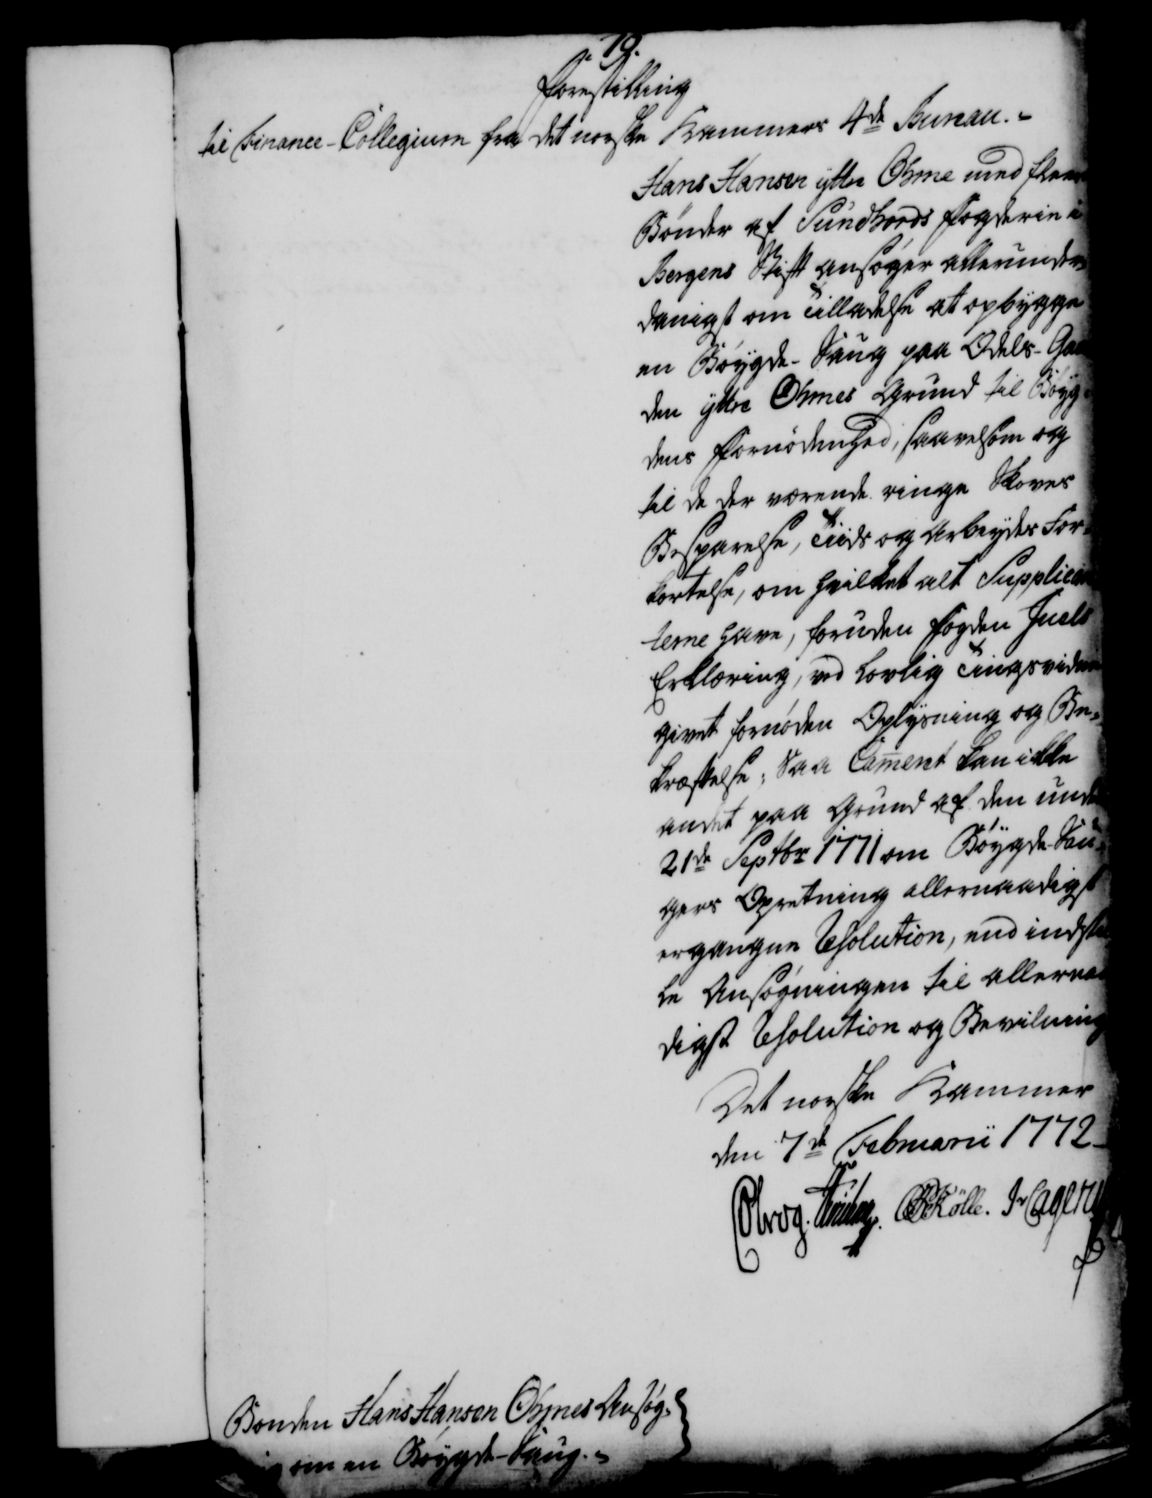 19.
Forestilling
til Finance-Collegium fra det norske Kammers 4de Bureau.-
Hans Hansen yttre Ohme med fleere
Bønder af Sundhords Fogderie i
Bergens Stift ansøger allerunder-
danigst om Tilladelse at opbygge
en Bøygde-Saug paa Odels-Gaar
den yttre Ohmes Grund til Bøyg-
dens Fornødenhed, saavelsom og
til de der værende ringe Skoves
Besparelse, Tiids og Arbeydes For-
kortelse, om hvilket alt Supplican
terne have, foruden Fogden Juels
Erklæring, ved lovlig Tingsvidne
givet fornøden Oplysning og Be-
kræftelse; Saa Cam̄eret kan ikke
andet paa Grund af den under
21de Septbr 1771 om Bøygde-Sau-
gers Opretning allernaadigst
ergangne Resolution, end indstil
le Ansøgningen til allernaa
digst Resolution og Bevilning
Det norske Kammer
den 7de Februarii 1772-
Holle.
Bonden Hans Hansen Ohmes Ansøg-
om en Bøygde-Saug.-